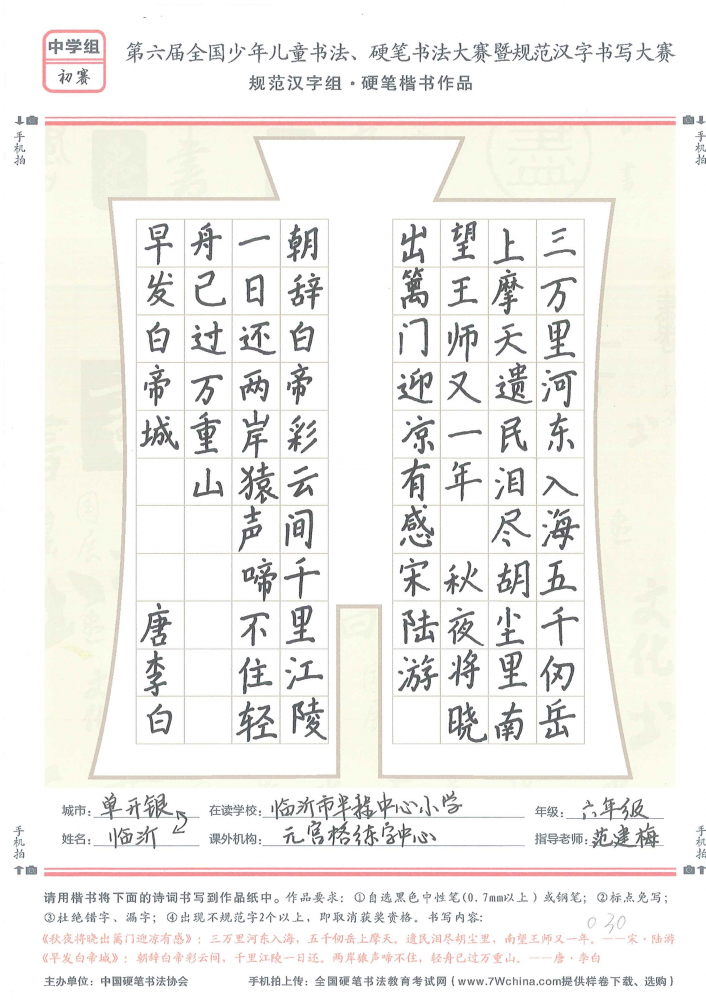 中学组
初赛
第六届全国少年儿童书法、硬笔书法大赛暨规范汉字书写大赛
规范汉字组·硬笔楷书作品
手机拍
手机拍
三万里河东入海五千仞岳
上摩天遗民泪尽胡尘里南
望王师又一年 秋夜将晓
出篱门迎凉有感 宋陆游
朝辞白帝彩云间千里江陵
一日还两岸猿声啼不住轻
舟已过万重山
早发白帝城 唐李白
手机拍
手机拍
城市：单开银 在读学校：临沂市半程中心小学 年级：六年级
姓名：临沂 课外机构：元宫格练字中心 指导老师：范建梅
请用楷书将下面的诗词书写到作品纸中。作品要求：①自选黑色中性笔(0.7mm以上）或钢笔；②标点免写；
③杜绝错字、漏字；④出现不规范字2个以上，即取消获奖资格。书写内容：
030
《秋夜将晓出篱门迎凉有感》：三万里河东入海，五千仞岳上摩天。遗民泪尽胡尘里，南望王师又一年。——宋·陆游
《早发白帝城》：朝辞白帝彩云间，千里江陵一日还。两岸猿声啼不住，轻舟已过万重山。——唐·李白
主办单位：中国硬笔书法协会 手机拍上传：全国硬笔书法教育考试网（www.7Wchina.com提供样卷下载、选购）